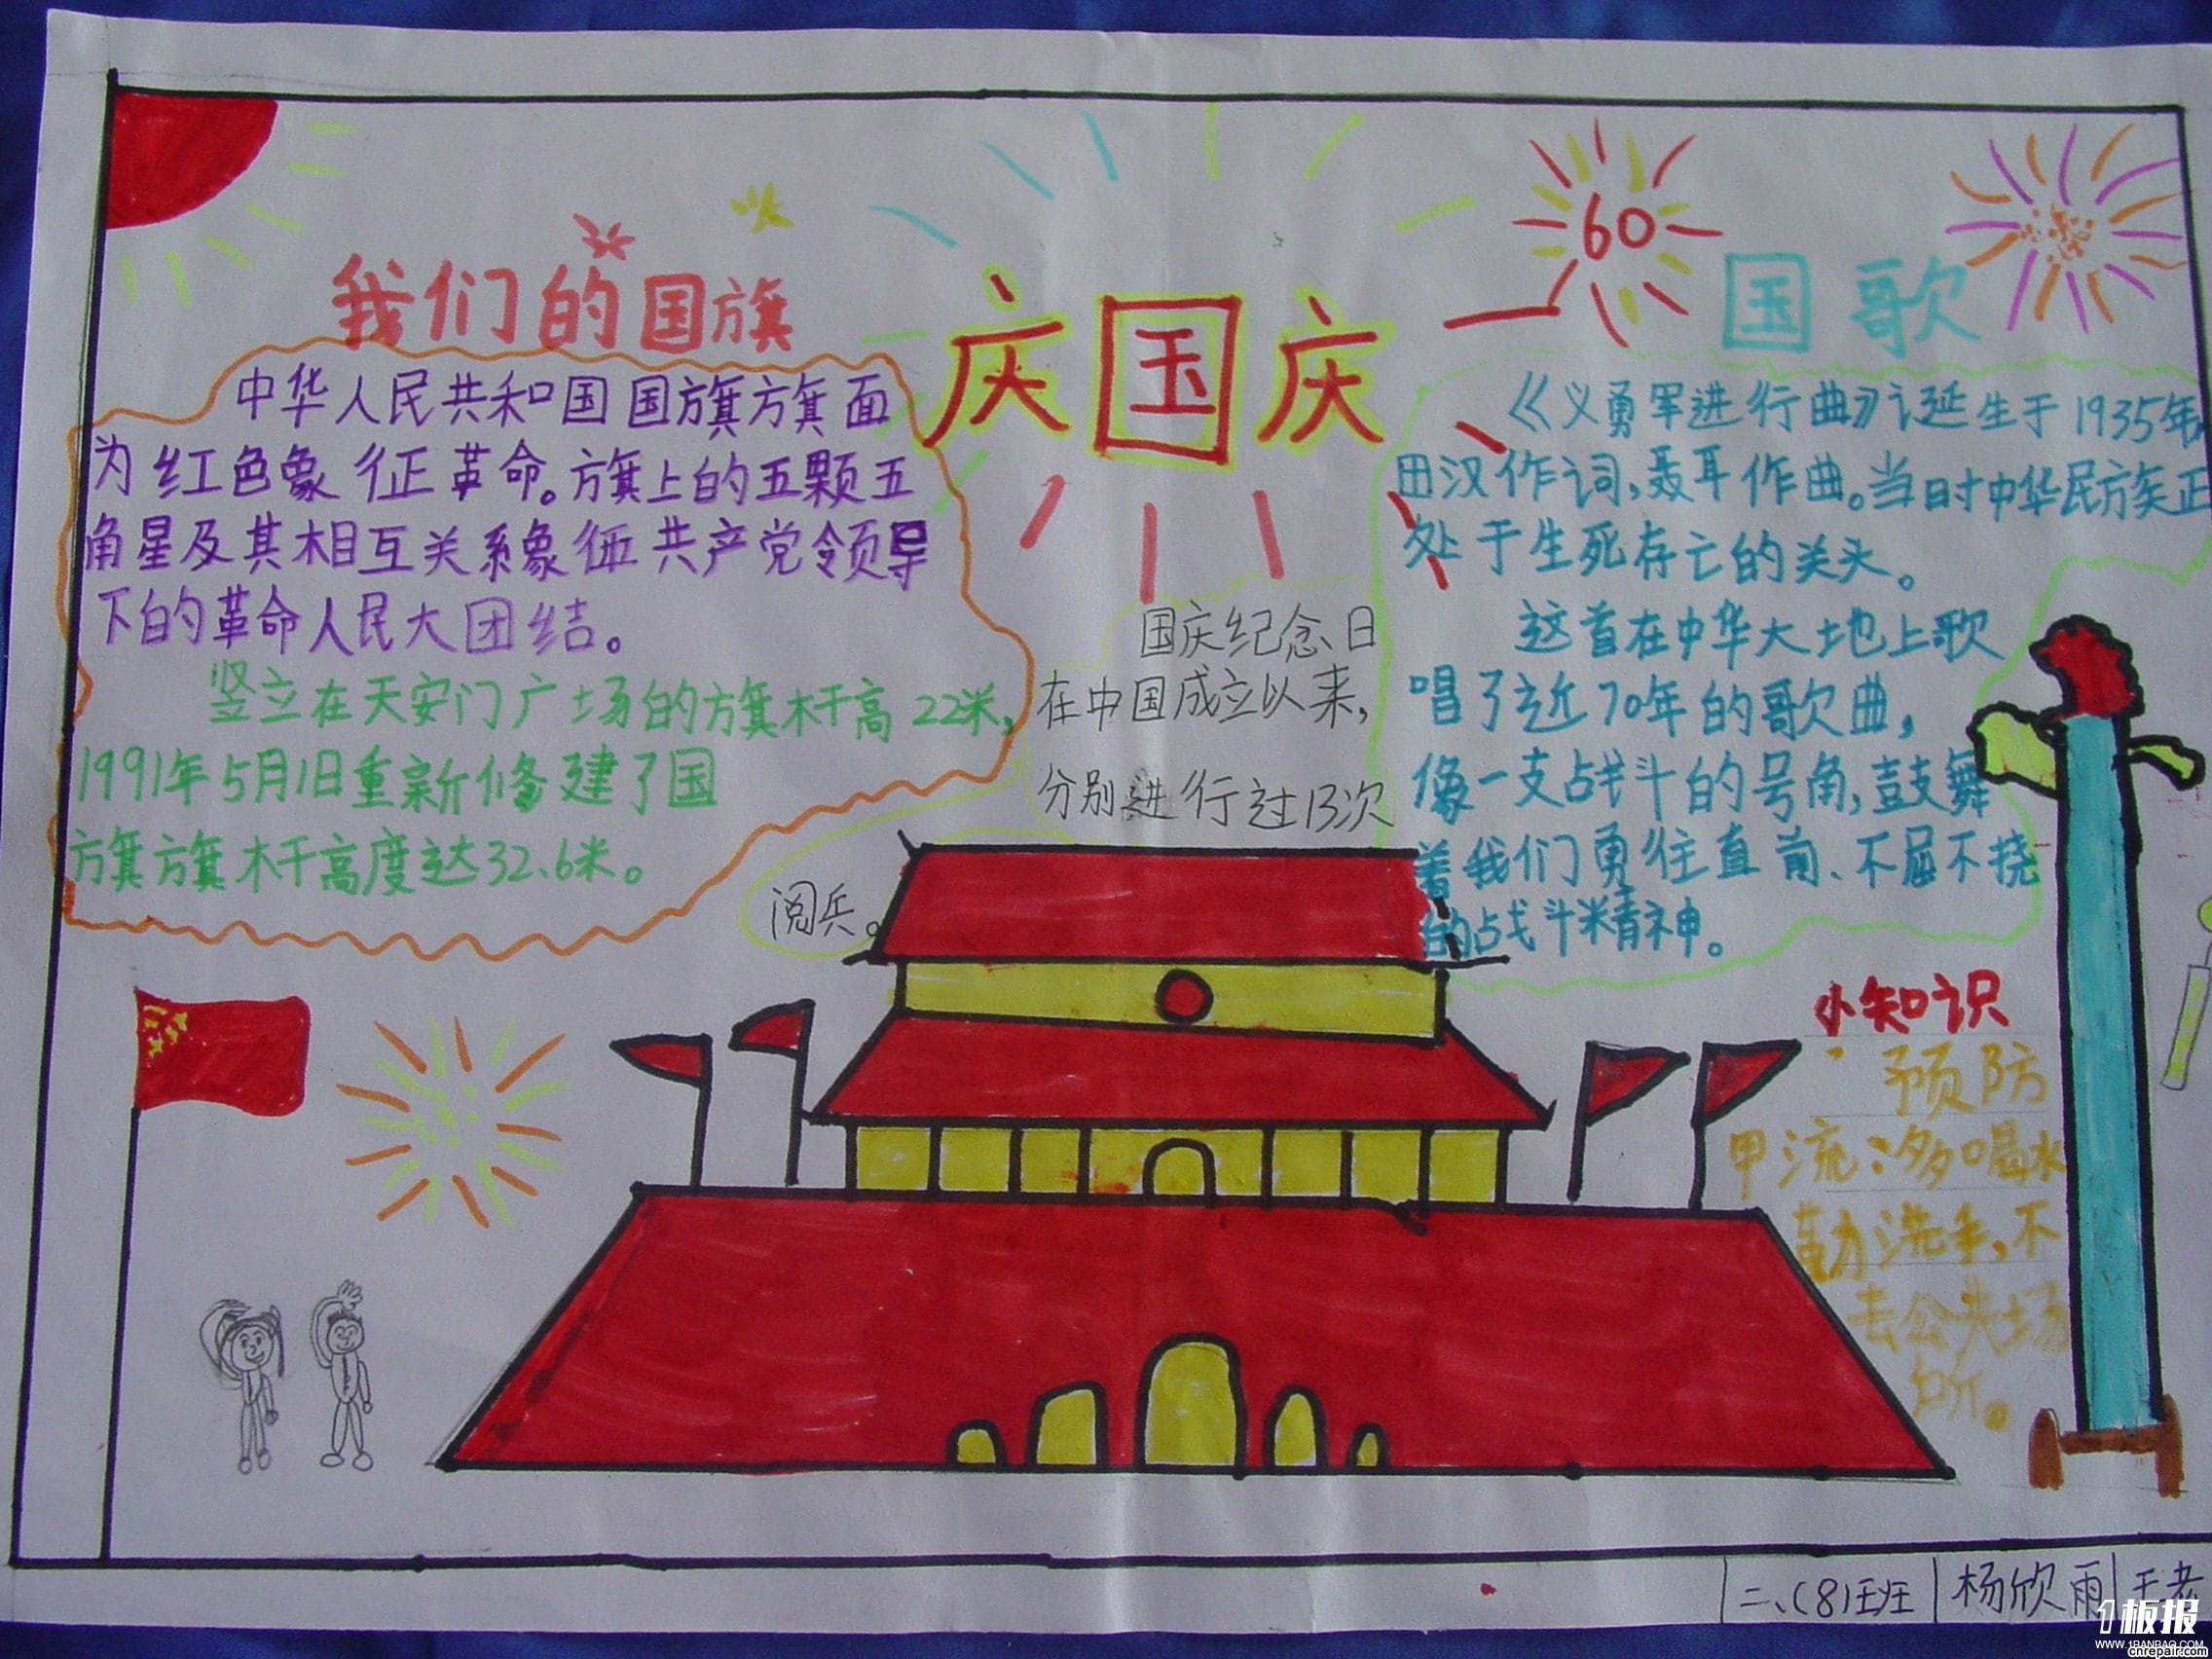 我们的国旗
中华人民共和国国旗旗面
为红色象征革命。旗上的五颗五
角星及其相互关系象征共产党领导
下的革命人民大团结。
竖立在天安门广场的旗杆高22米,
1991年5月1日重新修建了国
旗旗杆高度达32.6米。
庆国庆
国庆纪念日
在中国成立以来,
分别进行过13次
阅兵。
60
国歌
《义勇军进行曲》诞生于1935年,
田汉作词,聂耳作曲。当时中华民族正
处于生死存亡的关头。
这首在中华大地上歌
唱了近70年的歌曲,
像一支战斗的号角,鼓舞
着我们勇往直前、不屈不挠
的战斗精神。
小知识
预防
甲流:多喝水
勤洗手,不
去公共场
所。
二、(8)班 杨欣雨
1板报
WWW.1BANBAO.COM
cnrepair.com